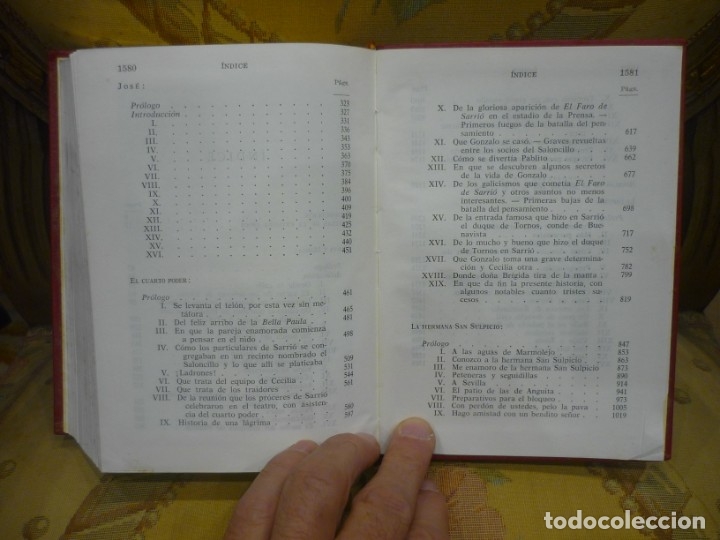 1580 ÍNDICE
JOSÉ: Págs.
Prólogo . . . 323
Introducción . . . 327
I. . . . 331
II. . . . 337
III. . . . 344
IV. . . . 361
V. . . . 350
VI. . . . 370
VII. . . . 378
VIII. . . . 384
IX. . . . 396
X. . . . 401
XI. . . . 409
XII. . . . 419
XIII. . . . 425
XIV. . . . 432
XV. . . . 440
XVI. . . . 451
EL CUARTO PODER:
Prólogo . . . 461
I. Se levanta el telón, por esta vez sin me-
táfora . . . 465
II. Del feliz arribo de la Bella Paula . . . 481
III. En que la pareja enamorada comienza
a pensar en el nido . . . 498
IV. Cómo los particulares de Sarrió se con-
gregaban en un recinto nombrado el
Saloncillo y lo que allí se platicaba . . . 509
V. ¡Ladrones! . . . 531
VI. Que trata del equipo de Cecilia . . . 544
VII. Que trata de los traidores . . . 561
VIII. De la reunión que los próceres de Sarrió
celebraron en el teatro, con asisten-
cia del cuarto poder . . . 580
IX. Historia de una lágrima . . . 597
ÍNDICE 1581
Págs.
X. De la gloriosa aparición de El Faro de
Sarrió en el estadio de la Prensa. —
Primeros fuegos de la batalla del pen-
samiento . . . 617
XI. Que Gonzalo se casó. — Graves revueltas
entre los socios del Saloncillo . . . 639
XII. Cómo se divertía Pablito . . . 662
XIII. En que se descubren algunos secretos
de la vida de Gonzalo . . . 677
XIV. De los galicismos que cometía El Faro
de Sarrió y otros asuntos no menos
interesantes. — Primeras bajas de la
batalla del pensamiento . . . 698
XV. De la entrada famosa que hizo en Sarrió
el duque de Tornos, conde de Bue-
navista . . . 717
XVI. De lo mucho y bueno que hizo el duque
de Tornos en Sarrió . . . 752
XVII. Que Gonzalo toma una grave determina-
ción y Cecilia otra . . . 782
XVIII. Donde doña Brígida tira de la manta . . . 799
XIX. En que da fin la presente historia, con
algunos notables cuanto tristes su-
cesos . . . 819
LA HERMANA SAN SULPICIO:
Prólogo . . . 847
I. A las aguas de Marmolejo . . . 853
II. Conozco a la hermana San Sulpicio . . . 863
III. Me enamoro de la hermana San Sulpicio . . . 873
IV. Peteneras y seguidillas . . . 896
V. A Sevilla . . . 914
VI. El patio de las de Anguita . . . 941
VII. Preparativos para el bloqueo . . . 973
VIII. Con perdón de ustedes, pelo la pava . . . 1005
IX. Hago amistad con un bendito señor . . . 1019
todocoleccion.net